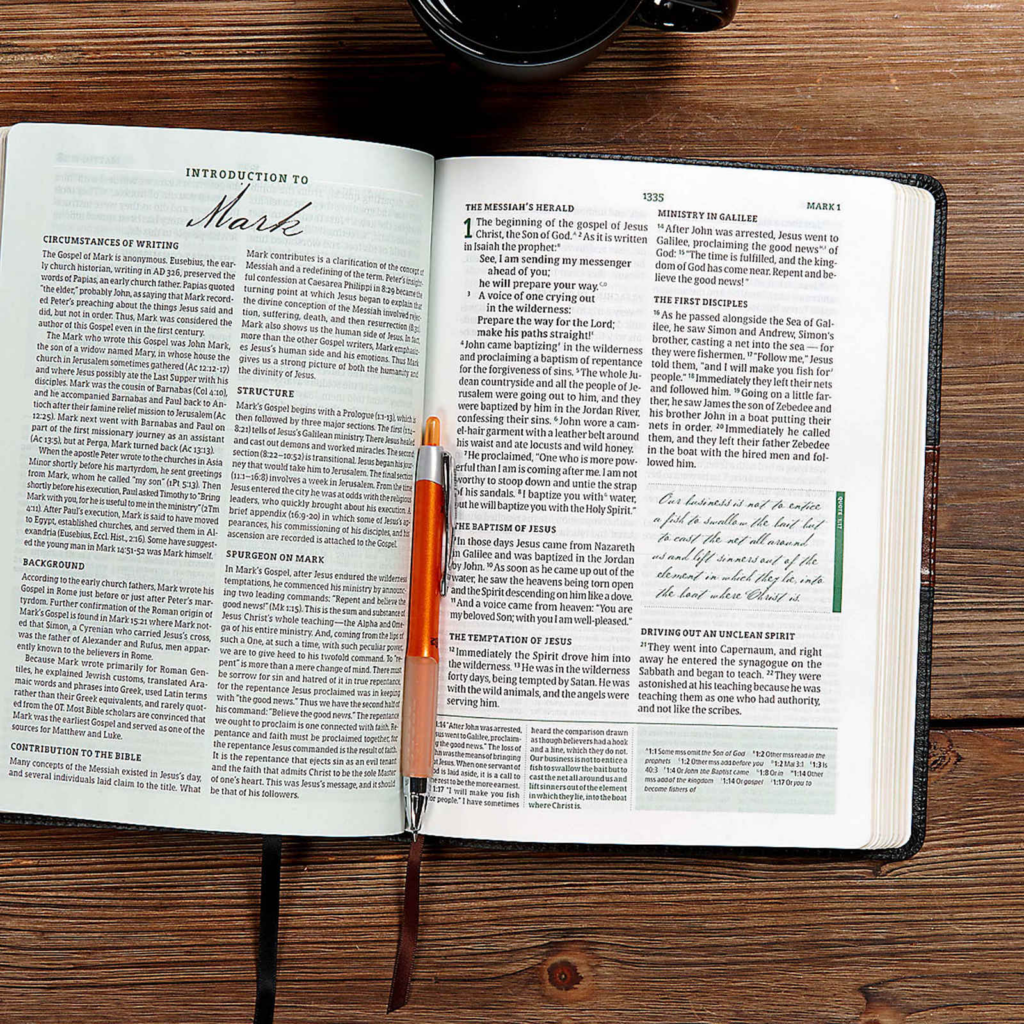 INTRODUCTION TO
Mark
CIRCUMSTANCES OF WRITING
The Gospel of Mark is anonymous. Eusebius, the ear-
ly church historian, writing in AD 326, preserved the
words of Papias, an early church father. Papias quoted
"the elder," probably John, as saying that Mark record-
ed Peter's preaching about the things Jesus said and
did, but not in order. Thus, Mark was considered the
author of this Gospel even in the first century.
The Mark who wrote this Gospel was John Mark,
the son of a widow named Mary, in whose house the
church in Jerusalem sometimes gathered (Ac 12:12-17)
and where Jesus possibly ate the Last Supper with his
disciples. Mark was the cousin of Barnabas (Col 4:10),
and he accompanied Barnabas and Paul back to An-
tioch after their famine relief mission to Jerusalem (Ac
12:25). Mark next went with Barnabas and Paul on
part of the first missionary journey as an assistant
(Ac 13:5), but at Perga, Mark turned back (Ac 13:13).
When the apostle Peter wrote to the churches in Asia
Minor shortly before his martyrdom, he sent greetings
from Mark, whom he called "my son" (1Pt 5:13). Then
shortly before his execution, Paul asked Timothy to "Bring
Mark with you, for he is useful to me in the ministry" (2Tm
4:11). After Paul's execution, Mark is said to have moved
to Egypt, established churches, and served them in Al-
exandria (Eusebius, Eccl. Hist., 2:16). Some have suggest-
ed the young man in Mark 14:51-52 was Mark himself.
BACKGROUND
According to the early church fathers, Mark wrote his
Gospel in Rome just before or just after Peter's mar-
tyrdom. Further confirmation of the Roman origin of
Mark's Gospel is found in Mark 15:21 where Mark not-
ed that Simon, a Cyrenian who carried Jesus's cross,
was the father of Alexander and Rufus, men appar-
ently known to the believers in Rome.
Because Mark wrote primarily for Roman Gen-
tiles, he explained Jewish customs, translated Ara-
maic words and phrases into Greek, used Latin terms
rather than their Greek equivalents, and rarely quot-
ed from the OT. Most Bible scholars are convinced that
Mark was the earliest Gospel and served as one of the
sources for Matthew and Luke.
CONTRIBUTION TO THE BIBLE
Many concepts of the Messiah existed in Jesus's day,
and several individuals laid claim to the title. What
Mark contributes is a clarification of the concept of
Messiah and a redefining of the term. Peter's insight-
ful confession at Caesarea Philippi in 8:29 became the
turning point at which Jesus began to explain that
the divine conception of the Messiah involved rejec-
tion, suffering, death, and then resurrection (8:31).
Mark also shows us the human side of Jesus. In fact,
more than the other Gospel writers, Mark emphasiz-
es Jesus's human side and his emotions. Thus Mark
gives us a strong picture of both the humanity and
the divinity of Jesus.
STRUCTURE
Mark's Gospel begins with a Prologue (1:1-13), which is
then followed by three major sections. The first (1:14-
8:21) tells of Jesus's Galilean ministry. There Jesus healed
and cast out demons and worked miracles. The second
section (8:22–10:52) is transitional. Jesus began his jour-
ney that would take him to Jerusalem. The final section
(11:1–16:8) involves a week in Jerusalem. From the time
Jesus entered the city he was at odds with the religious
leaders, who quickly brought about his execution. A
brief appendix (16:9-20) in which some of Jesus's ap-
pearances, his commissioning of his disciples, and his
ascension are recorded is attached to the Gospel.
SPURGEON ON MARK
In Mark's Gospel, after Jesus endured the wilderness
temptations, he commenced his ministry by announc-
ing two leading commands: "Repent and believe the
good news!" (Mk 1:15). This is the sum and substance of
Jesus Christ's whole teaching—the Alpha and Ome-
ga of his entire ministry. And, coming from the lips of
such a One, at such a time, with such peculiar power,
we are to give heed to his twofold command. To "re-
pent" is more than a mere change of mind. There must
be sorrow for sin and hatred of it in true repentance,
for the repentance Jesus proclaimed was in keeping
with "the good news." Thus we have the second half of
his command: "Believe the good news." The repentance
we ought to proclaim is one connected with faith. Re-
pentance and faith must be proclaimed together, for
the repentance Jesus commanded is the result of faith.
It is the repentance that ejects sin as an evil tenant
and the faith that admits Christ to be the sole Master
of one's heart. This was Jesus's message, and it should
be that of his followers.
1335
MARK 1
THE MESSIAH'S HERALD
1 The beginning of the gospel of Jesus
Christ, the Son of God. 2 As it is written
in Isaiah the prophet:
See, I am sending my messenger
ahead of you;
he will prepare your way.
3 A voice of one crying out
in the wilderness:
Prepare the way for the Lord;
make his paths straight!
4 John came baptizing in the wilderness
and proclaiming a baptism of repentance
for the forgiveness of sins. 5 The whole Ju-
dean countryside and all the people of Je-
rusalem were going out to him, and they
were baptized by him in the Jordan River,
confessing their sins. 6 John wore a cam-
el-hair garment with a leather belt around
his waist and ate locusts and wild honey.
7 He proclaimed, "One who is more pow-
erful than I am is coming after me. I am not
worthy to stoop down and untie the strap
of his sandals. 8 I baptize you with water,
but he will baptize you with the Holy Spirit."
THE BAPTISM OF JESUS
9 In those days Jesus came from Nazareth
in Galilee and was baptized in the Jordan
by John. 10 As soon as he came up out of the
water, he saw the heavens being torn open
and the Spirit descending on him like a dove.
11 And a voice came from heaven: "You are
my beloved Son; with you I am well-pleased."
THE TEMPTATION OF JESUS
12 Immediately the Spirit drove him into
the wilderness. 13 He was in the wilderness
forty days, being tempted by Satan. He was
with the wild animals, and the angels were
serving him.
MINISTRY IN GALILEE
14 After John was arrested, Jesus went to
Galilee, proclaiming the good news of
God: 15 "The time is fulfilled, and the king-
dom of God has come near. Repent and be-
lieve the good news!"
THE FIRST DISCIPLES
16 As he passed alongside the Sea of Gal-
ilee, he saw Simon and Andrew, Simon's
brother, casting a net into the sea — for
they were fishermen. 17 "Follow me," Jesus
told them, "and I will make you fish for
people." 18 Immediately they left their nets
and followed him. 19 Going on a little far-
ther, he saw James the son of Zebedee and
his brother John in a boat putting their
nets in order. 20 Immediately he called
them, and they left their father Zebedee
in the boat with the hired men and fol-
lowed him.
Our business is not to entice
a fish to swallow the bait but
to cast the net all around
us and lift sinners out of the
element in which they lie, into
the boat where Christ is.
QUOTE 1:17
DRIVING OUT AN UNCLEAN SPIRIT
21 They went into Capernaum, and right
away he entered the synagogue on the
Sabbath and began to teach. 22 They were
astonished at his teaching because he was
teaching them as one who had authority,
and not like the scribes.
1:14 "After John was arrested,
Jesus went to Galilee, proclaiming
the good news." The loss of
John was the means of bringing
Jesus. When one servant of
God is laid aside, it is a call to
the rest to be the more earnest.
1:17 "I will make you fish
for people." I have sometimes
heard the comparison drawn
as though believers had a hook
and a line, which they do not.
Our business is not to entice a
fish to swallow the bait but to
cast the net all around us and
lift sinners out of the element
in which they lie, into the boat
where Christ is.
1:1 Some mss omit the Son of God 1:2 Other mss read in the
prophets 1:2 Other mss add before you 1:2 Mal 3:1 1:3 Is
40:3 1:4 Or John the Baptist came 1:8 Or in 1:14 Other
mss add of the kingdom 1:14 Or gospel 1:17 Or you to
become fishers of